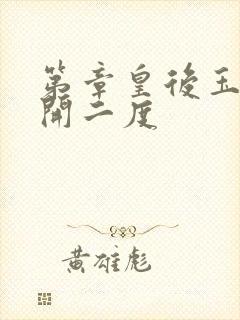 第章皇後玉
開二度
黃雄彪